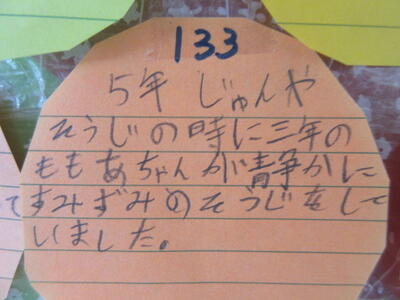 133
5年 じゅんや
そうじの時に三年の
ももあちゃんが静かに
すみずみのそうじをして
いました。